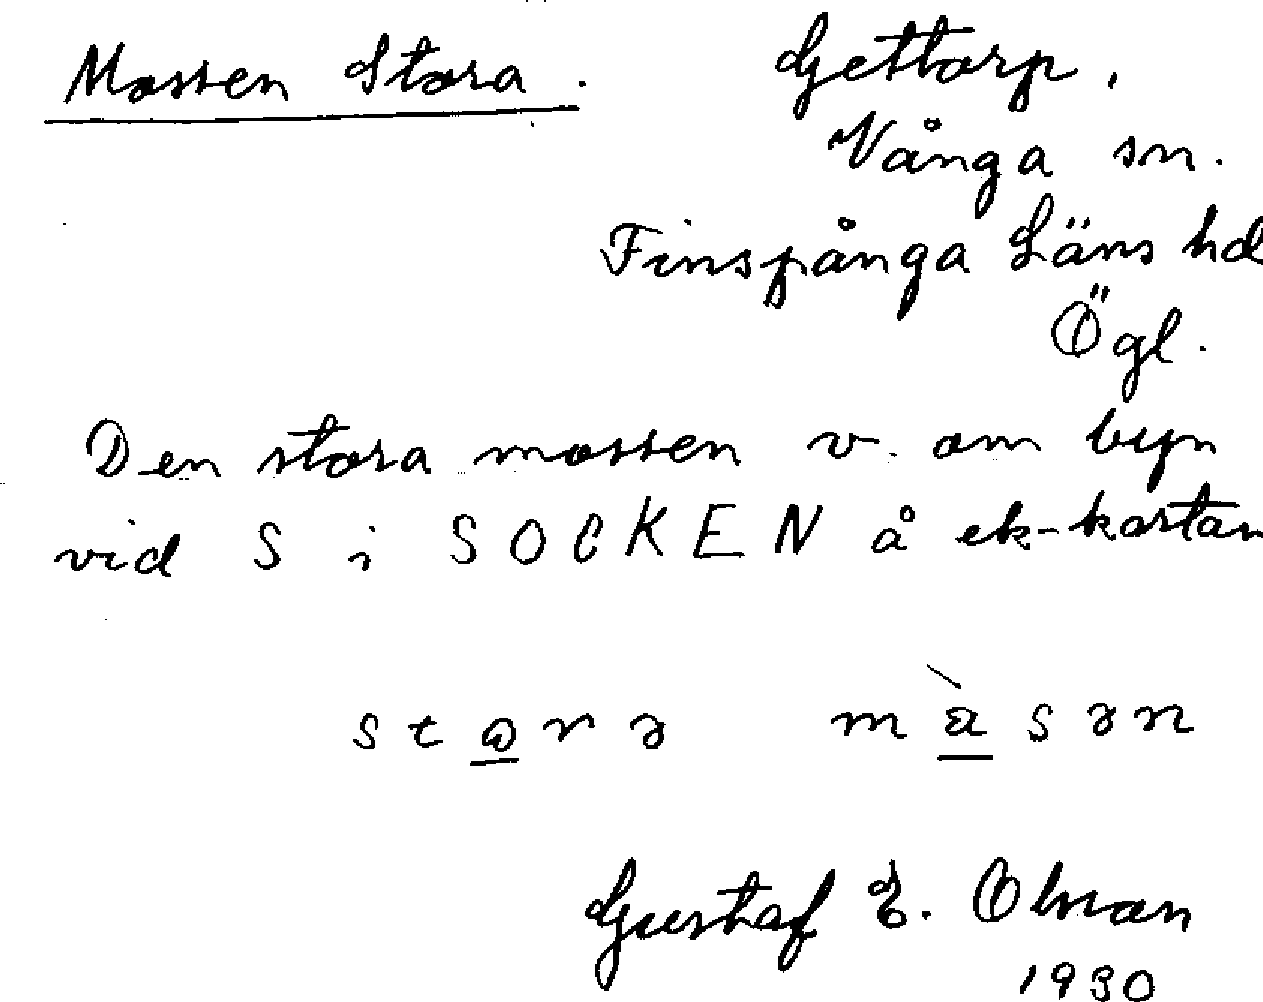 Mossen Stora.
Gettorp,
Vånga sn.
Finspånga Läns hd
Ögl.
Den stora mossen v. om byn
vid S i SOCKEN å ek-kartan
stωrə màsən
Gustaf E. Olson
1930